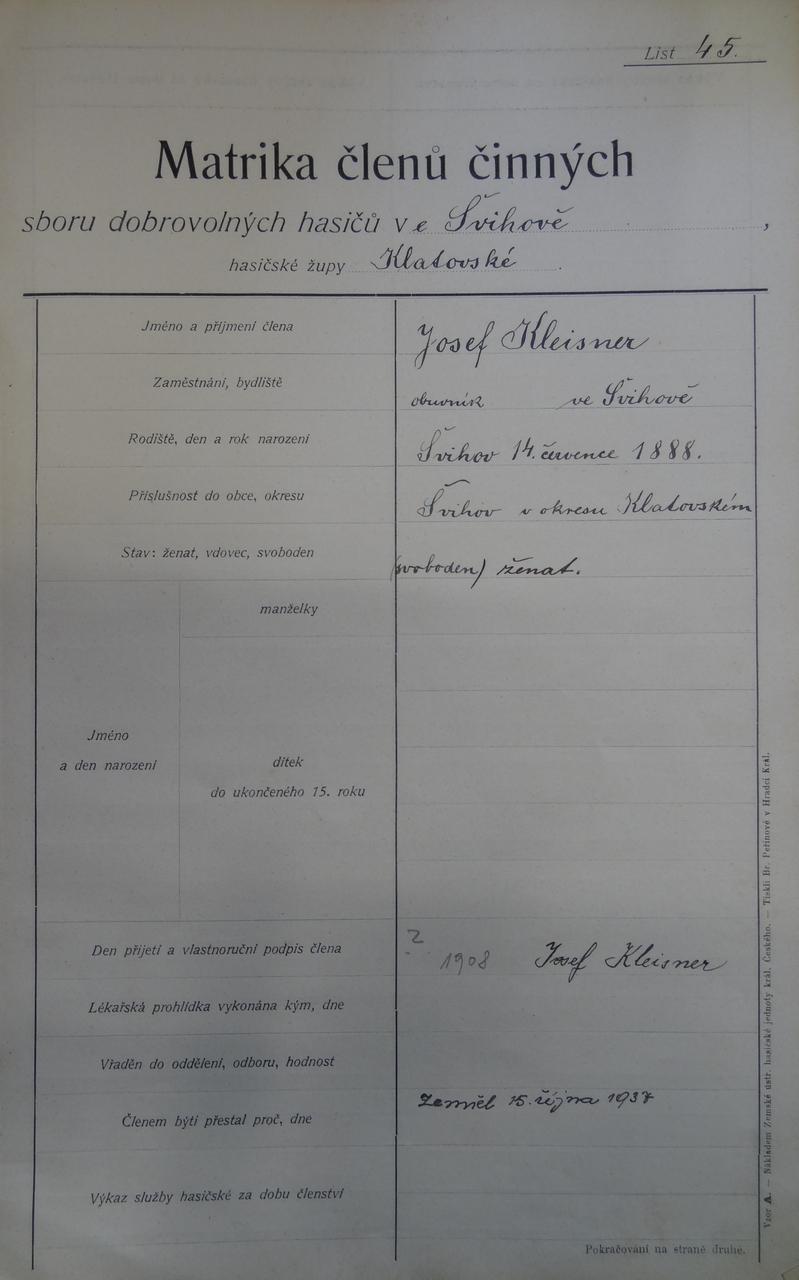 List 45.
Matrika členů činných
sboru dobrovolných hasičů ve Švihově,
hasičské župy Klatovské.
Jméno a příjmení člena Josef Kleisner
Zaměstnání, bydliště obuvník ve Švihově
Rodiště, den a rok narození Švihov 14. července 1888.
Příslušnost do obce, okresu Švihov v okresu Klatovském
Stav: ženat, vdovec, svoboden (svoboden) ženat.
manželky
Jméno
a den narození
dítek
do ukončeného 15. roku
Den přijetí a vlastnoruční podpis člena 1908 Josef Kleisner
Lékařská prohlídka vykonána kým, dne
Vřaděn do oddělení, odboru, hodnost
Členem býti přestal proč, dne Zemřel 15. října 1937
Výkaz služby hasičské za dobu členství
Pokračování na straně druhé.
Vzor A. — Nákladem Zemské ústř. hasičské jednoty král. Českého. — Tiskli Br. Peřinové v Hradci Král.